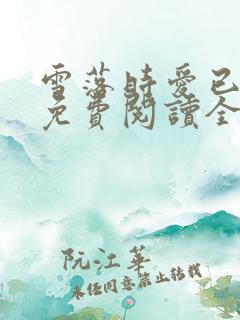 雪落時愛已
免費閱讀全
阮江華
未经同意禁止转载